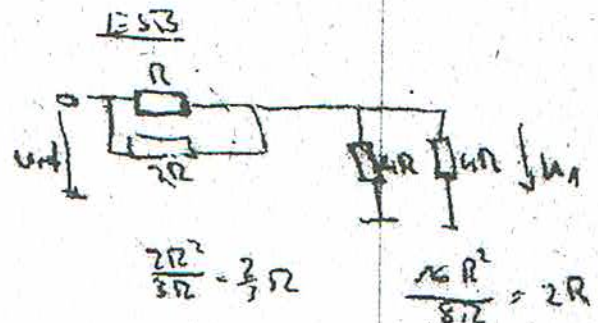 ESB
R
2R
4R 4R U1
2R²/3R = 2/3 R
16R²/8R = 2R